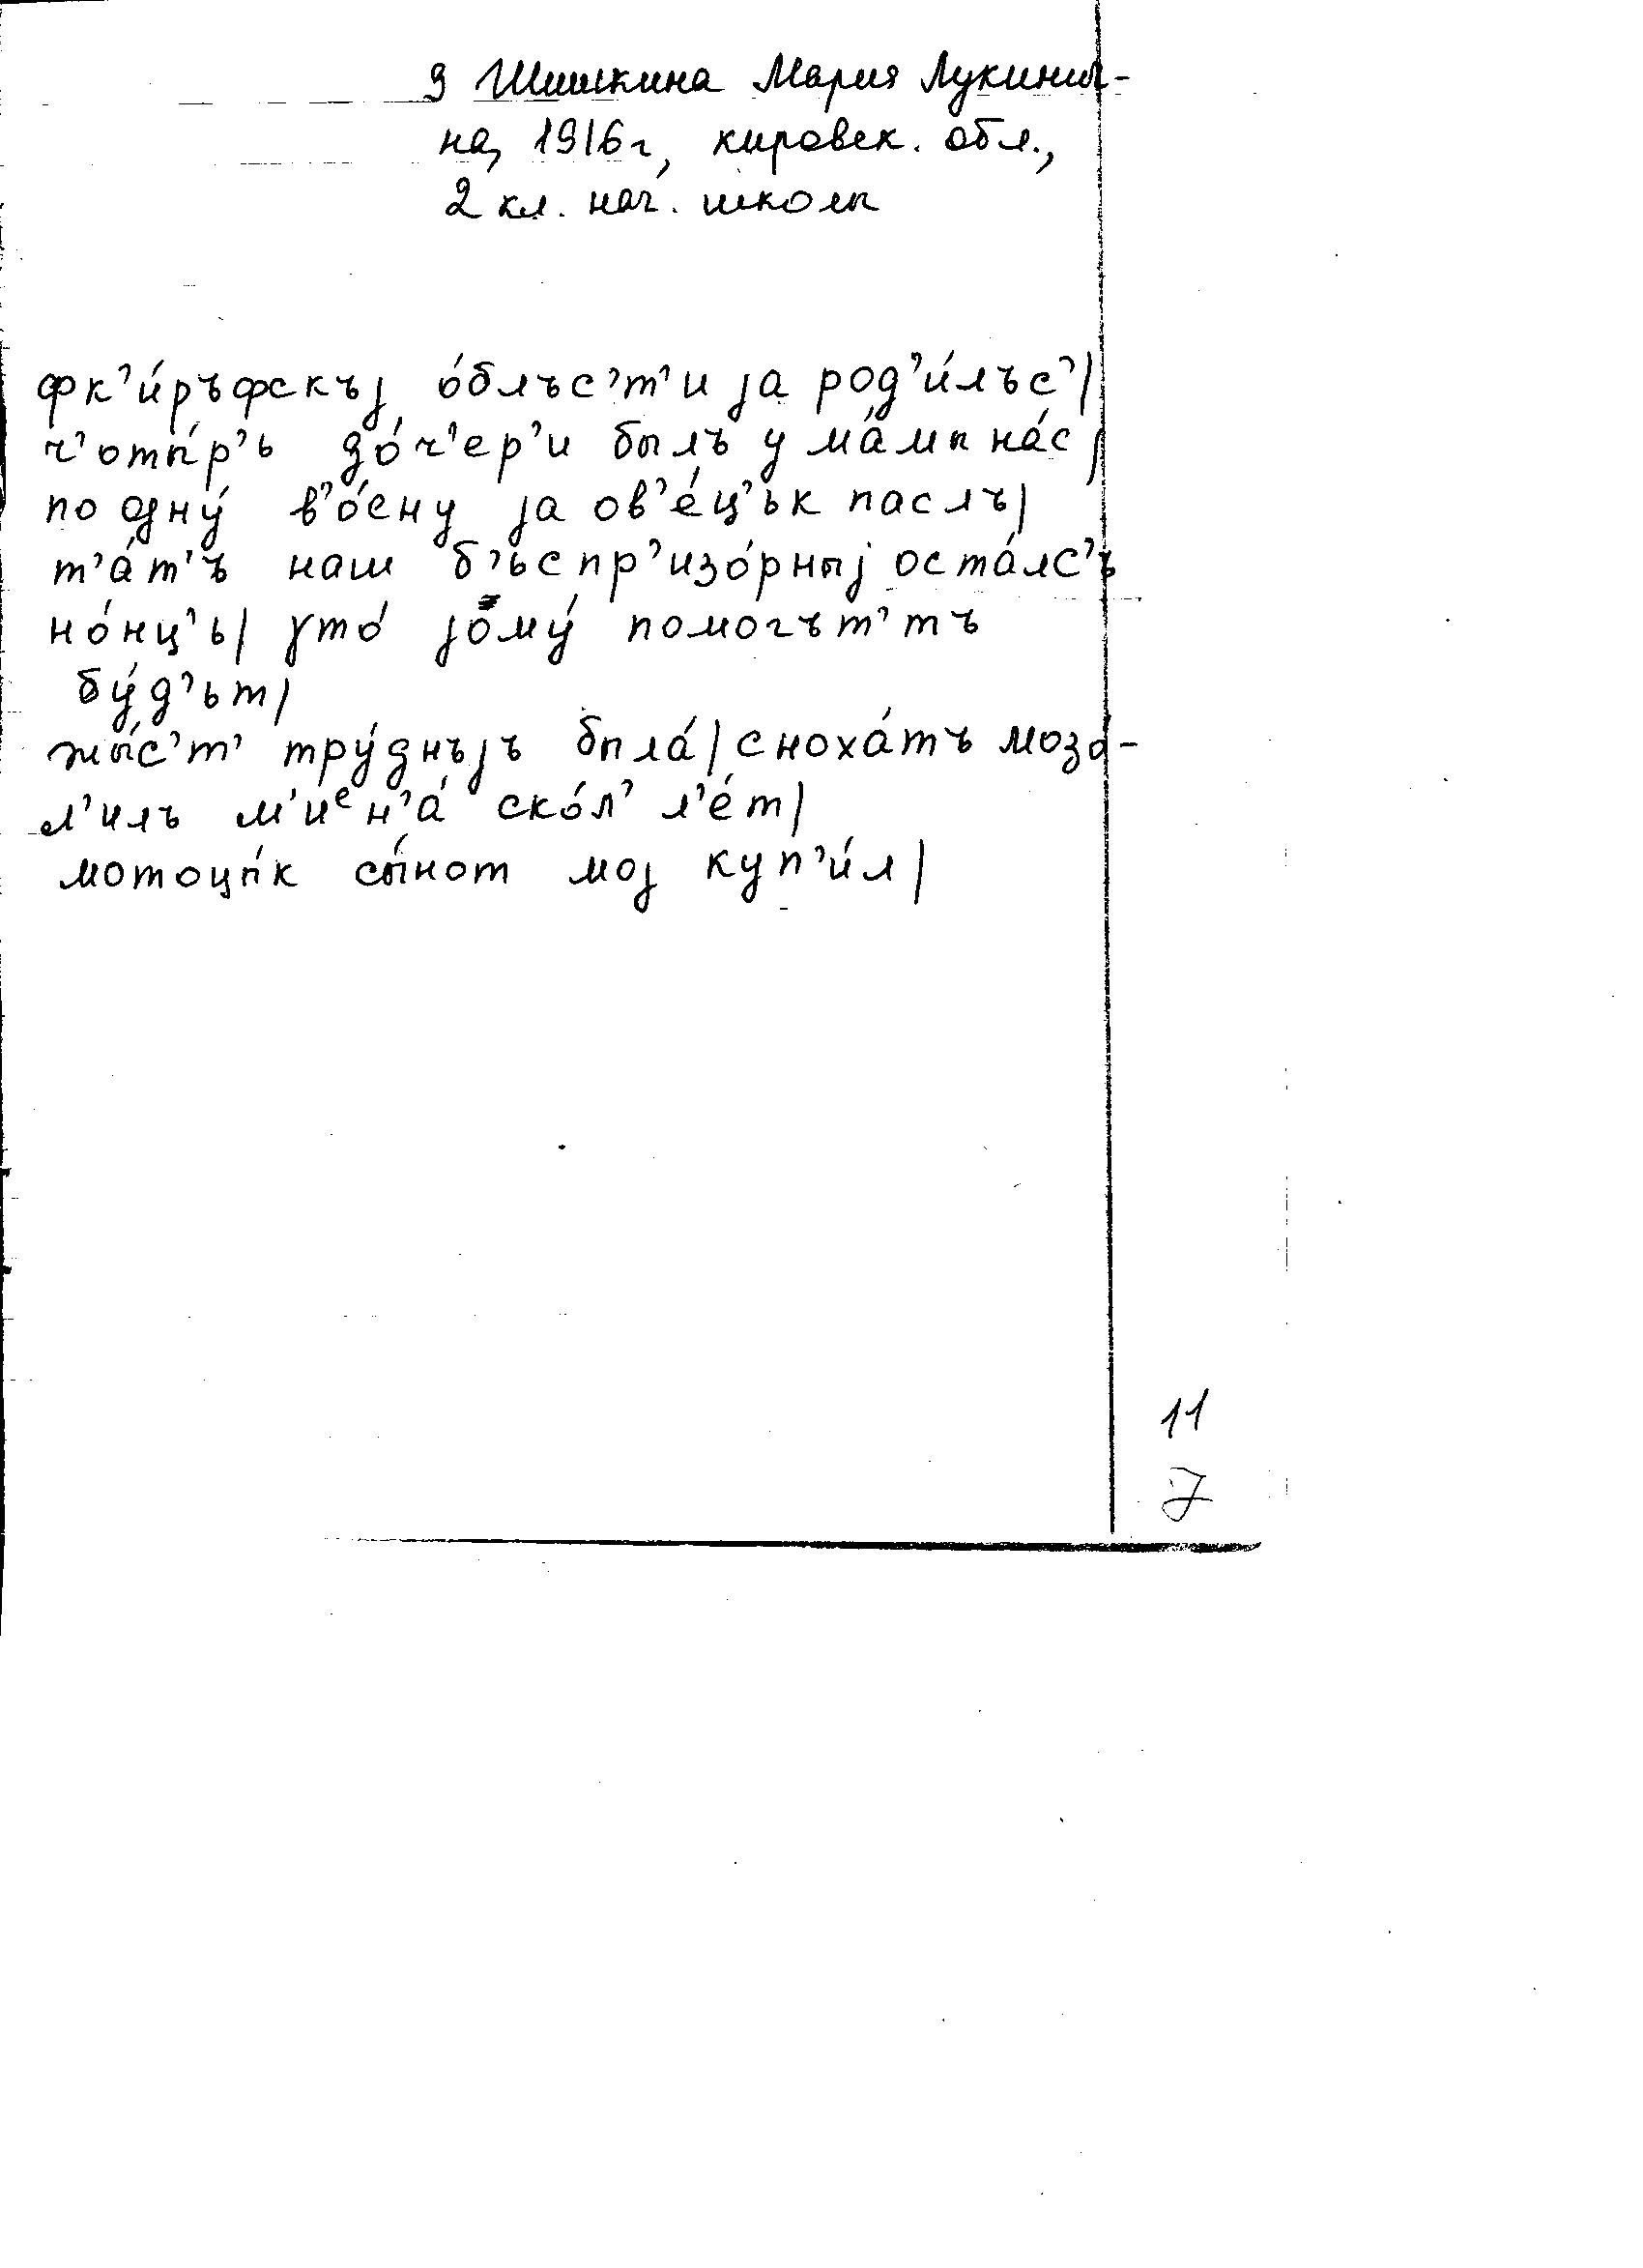 9 Шишкина Мария Лукинич-
на, 1916г, кировск. обл.,
2 кл. нач. школы
фк’и́ръфскъј о́блъс’т’и ја род’и́лъс’|
ч’оты́р’ь до́ч’ер’и былъ у ма́мы на́с|
по одну́ в’о́сну ја ов’е́ц’ък паслъ|
т’а́т’ъ наш б’ьспр’изо́рныј оста́лс’ъ
но́нц’ь| што́ јому́ помогът’тъ
бу́д’ьт|
жы́с’т’ тру́днъјъ была́| сноха́тъ мозо-
л’илъ м’иᵉн’а́ ско́л’ л’е́т|
мотоцы́к сы́нот мој куп’и́л|
11
7